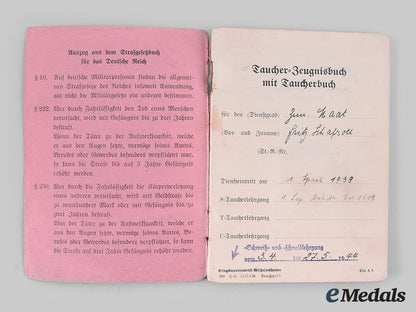 Auszug aus dem Strafgesetzbuch
für das Deutsche Reich
§ 10. Auf deutsche Militärpersonen finden die allgemei-
nen Strafgesetze des Reiches insoweit Anwendung,
als nicht die Militärgesetze ein anderes bestimmen.
§ 222. Wer durch Fahrlässigkeit den Tod eines Menschen
verursacht, wird mit Gefängnis bis zu drei Jahren
bestraft.
Wenn der Täter zu der Aufmerksamkeit, welche
er aus den Augen setzte, vermöge seines Amtes,
Berufes oder Gewerbes besonders verpflichtet war,
so kann die Strafe bis auf 5 Jahre Gefängnis
erhöht werden.
§ 230. Wer durch Fahrlässigkeit die Körperverletzung
eines anderen verursacht, wird mit Geldstrafe bis
zu neunhundert Mark oder mit Gefängnis bis zu
zwei Jahren bestraft.
War der Täter zu der Aufmerksamkeit, welche er
aus den Augen setzte, vermöge seines Amtes, Be-
rufes oder Gewerbes besonders verpflichtet, so kann
die Strafe auf drei Jahre Gefängnis erhöht werden.
Taucher-Zeugnisbuch
mit Taucherbuch
für den (Dienstgrad) Zim. Maat
(Vor- und Zuname) Fritz
St.-R.-Nr.
Diensteintritt am 1. April 1938
S-Taucherlehrgang 1. Sep. bis
T-Taucherlehrgang
U-Taucherlehrgang
Schweiß- und Schneidlehrgang
vom 3.4. bis 27.5. 1944
Kriegsmarinewerft Wilhelmshaven
eMedals